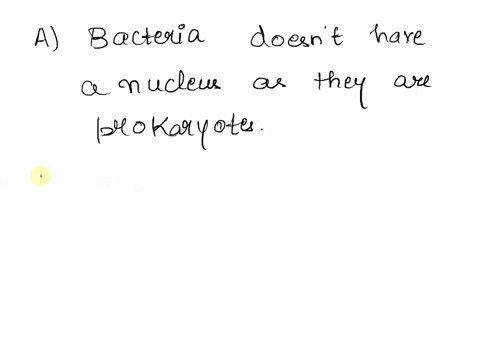 A) Bacteria doesn't have
a nucleus as they are
prokaryotes.